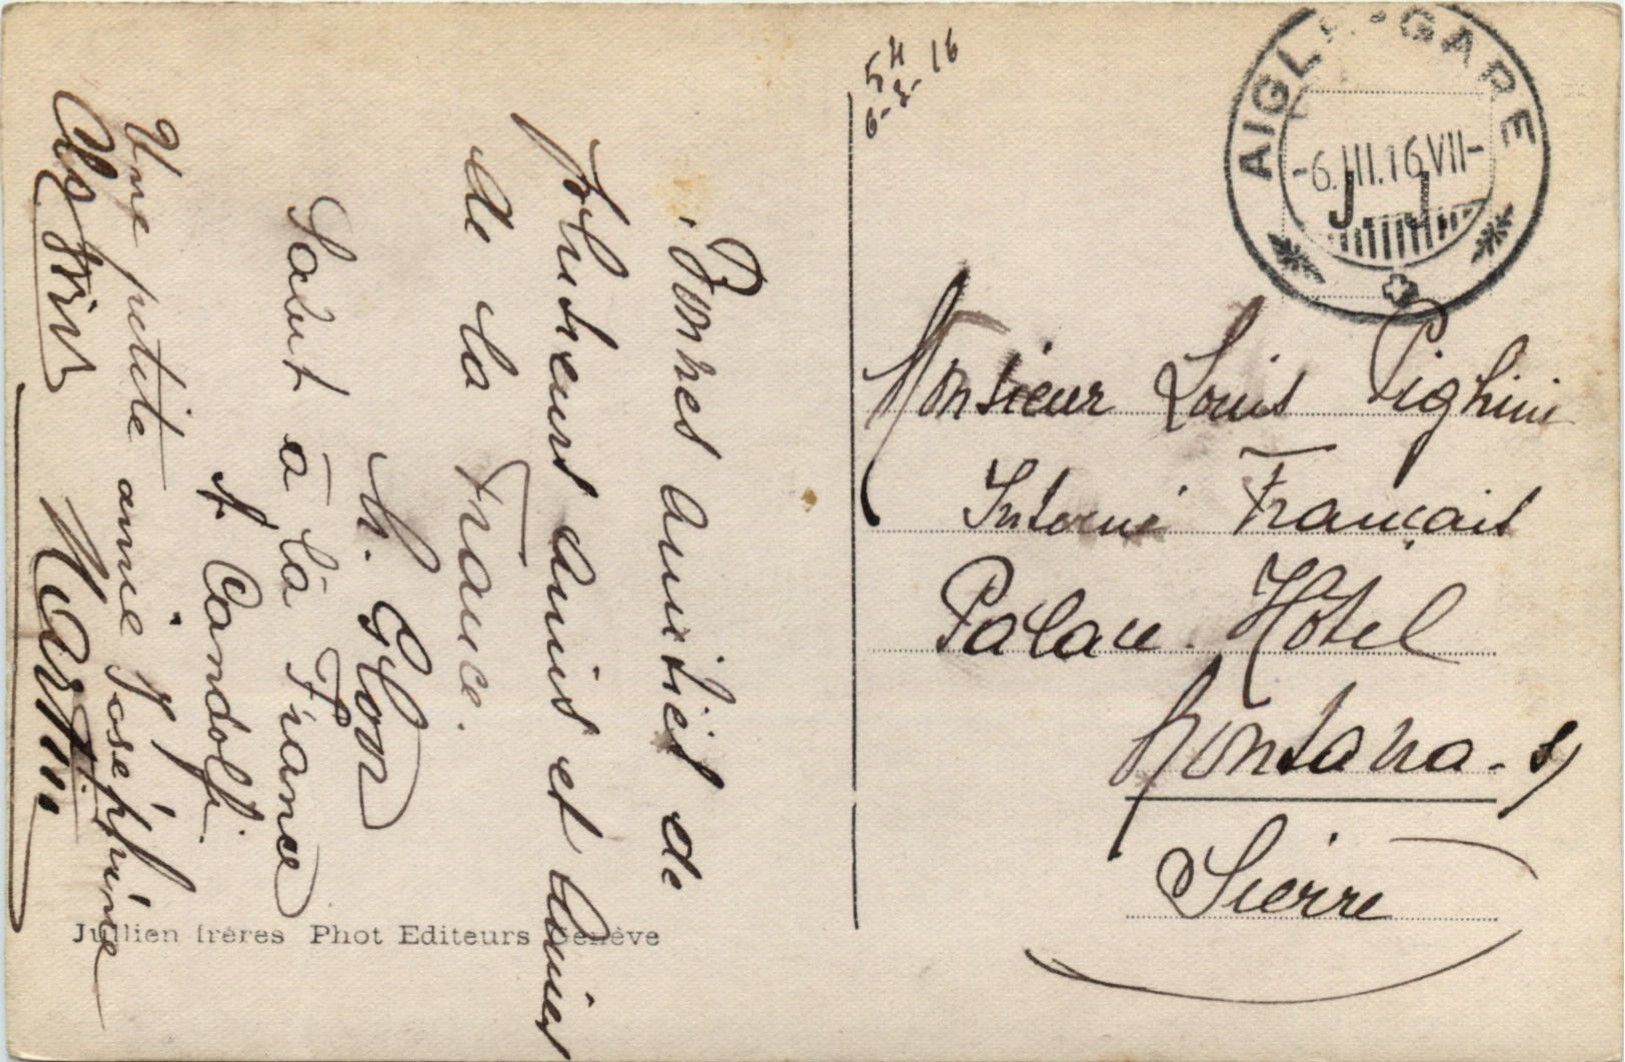 54
6-3-16
AIGLE-GARE
-6.III.16 VII-
J. J.
Monsieur Louis Pighini
Interné Français
Palace Hôtel
Montana-s/
Sierre
Bonnes amitiés de
plusieurs amis et amies
de la France.
h. Glon
Salut à la France
A Candolfi
Une petite amie Joséphine
Martin
Jullien frères Phot Editeurs Genève